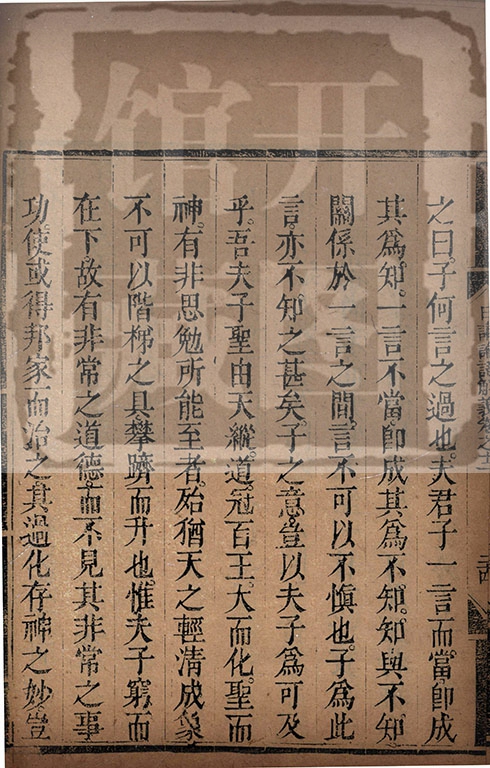 之曰子何言之過也夫君子一言而當卽成
其爲知一言不當卽成其爲不知知與不知
關係於一言之間言不可以不愼也子爲此
言亦不知之甚矣子之意豈以夫子爲可及
乎吾夫子聖由天縱道冠百王大而化聖而
神有非思勉所能至者殆猶天之輕清成象
不可以階梯之具攀躋而升也惟夫子窮而
在下故有非常之道德而不見其非常之事
功使或得邦家而治之其過化存神之妙豈